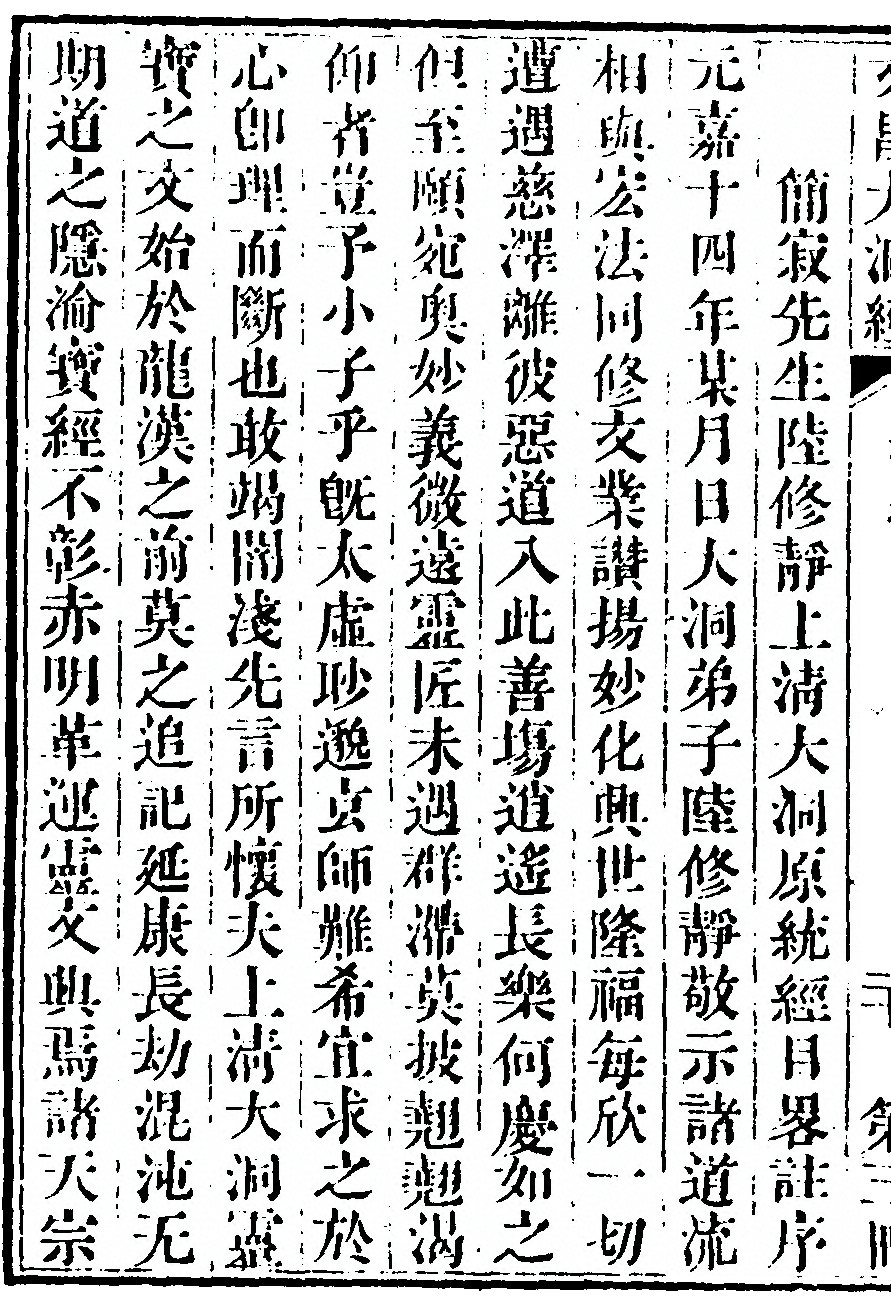 簡寂先生陸修靜上清大洞原統經目畧註序
元嘉十四年某月日大洞弟子陸修靜敬示諸道流
相與宏法同修文業讚揚妙化興世隆福每欣一切
遭遇慈澤離彼惡道入此善塲逍遙長樂何慶如之
但至賾宛奥妙義微遠靈匠未遇群滯莫披翹翹渴
仰者豈予小子乎旣太虛眇邈玄師難希宜求之於
心卽理而斷也敢竭闇淺先言所懷夫上清大洞靈
寶之文始於龍漢之前莫之追記延康長劫混沌无
期道之隱淪寶經不彰赤明革運靈文興焉諸天宗